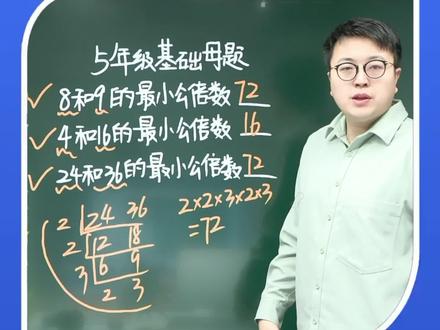 5年级基础母题
8和9的最小公倍数72
4和16的最小公倍数16
24和36的最小公倍数72
2 24 36
2 12 18
3 6 9
2 3
2×2×3×2×3
=72